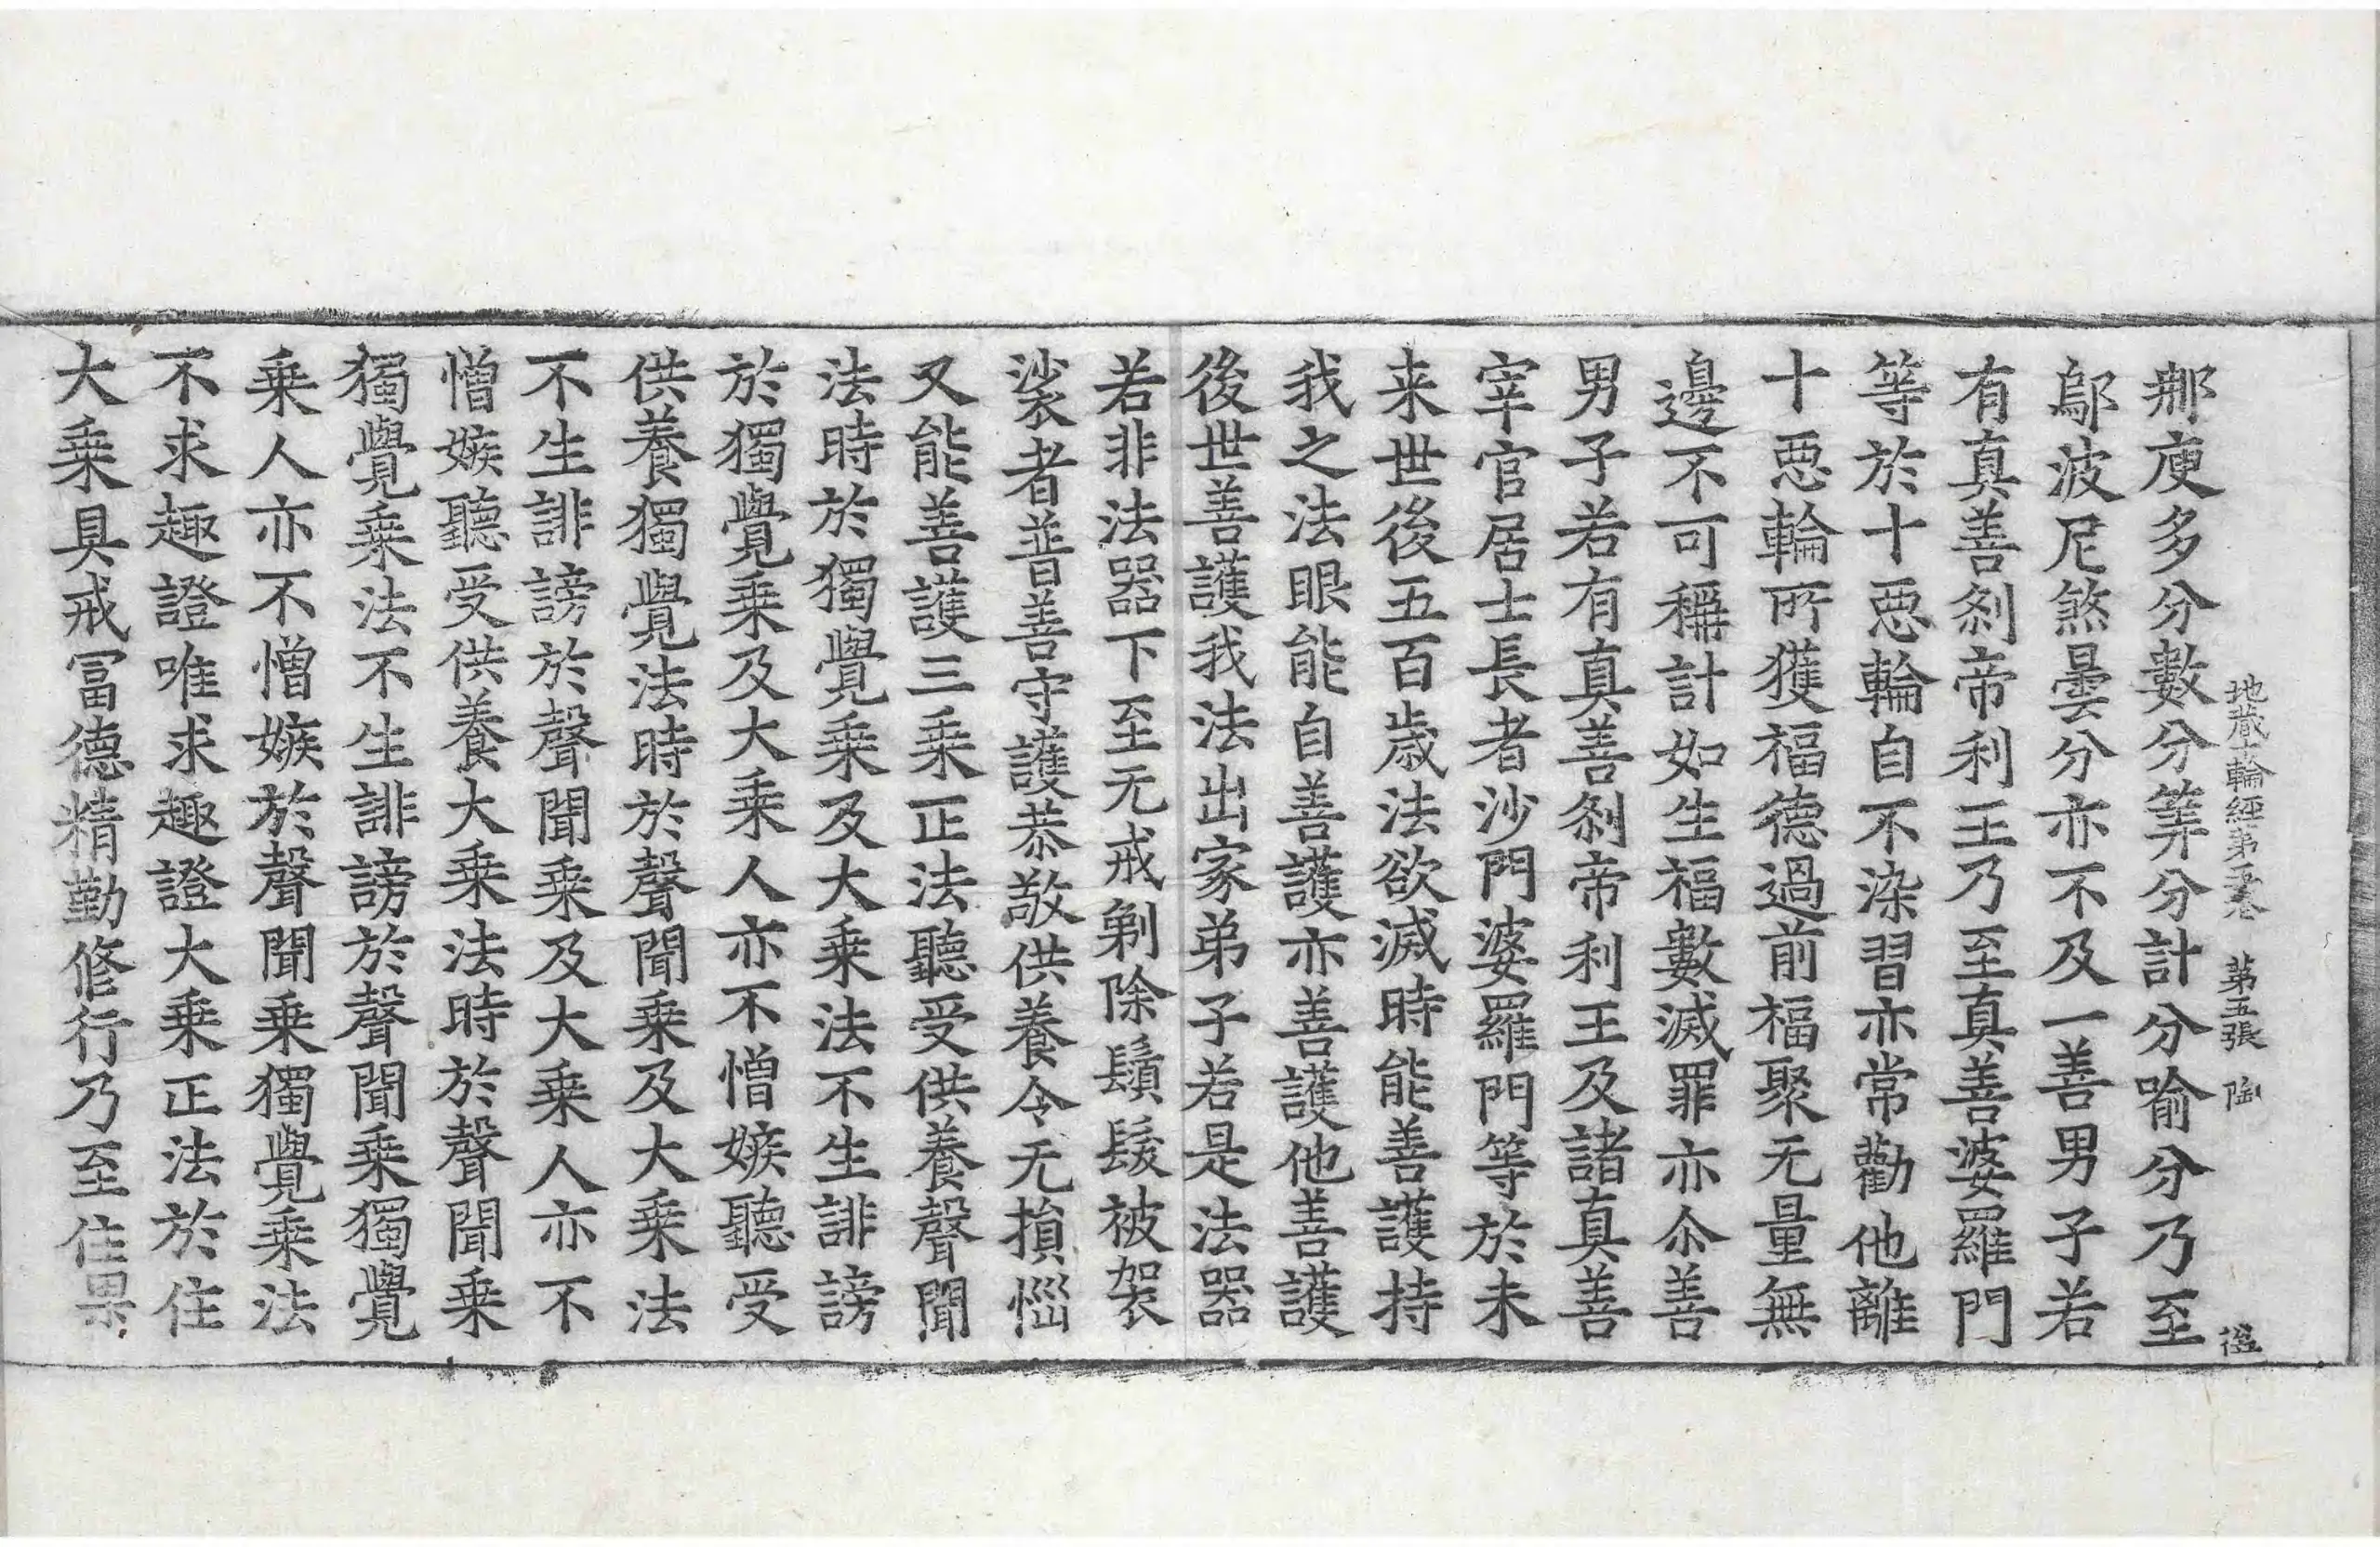 地藏十輪經第五卷 第五張 陶
那庾多分數分筭分計分喻分乃至
鄔波尼煞曇分亦不及一善男子若
有真善剎帝利王乃至真善婆羅門
等於十惡輪自不染習亦常勸他離
十惡輪所獲福德過前福聚无量無
邊不可稱計如生福數滅罪亦尒善
男子若有真善剎帝利王及諸真善
宰官居士長者沙門婆羅門等於未
来世後五百歲法欲滅時能善護持
我之法眼能自善護亦善護他善護
後世善護我法出家弟子若是法器
若非法器下至无戒剃除鬚髮被袈
裟者普善守護恭敬供養令无損惱
又能善護三乗正法聽受供養聲聞
法時於獨覺乗及大乗法不生誹謗
於獨覺乗及大乗人亦不憎嫉聽受
供養獨覺法時於聲聞乗及大乗法
不生誹謗於聲聞乗及大乗人亦不
憎嫉聽受供養大乗法時於聲聞乗
獨覺乗法不生誹謗於聲聞乗獨覺
乗人亦不憎嫉於聲聞乗獨覺乗法
不求趣證唯求趣證大乗正法於住
大乗具戒冨德精勤修行乃至住果